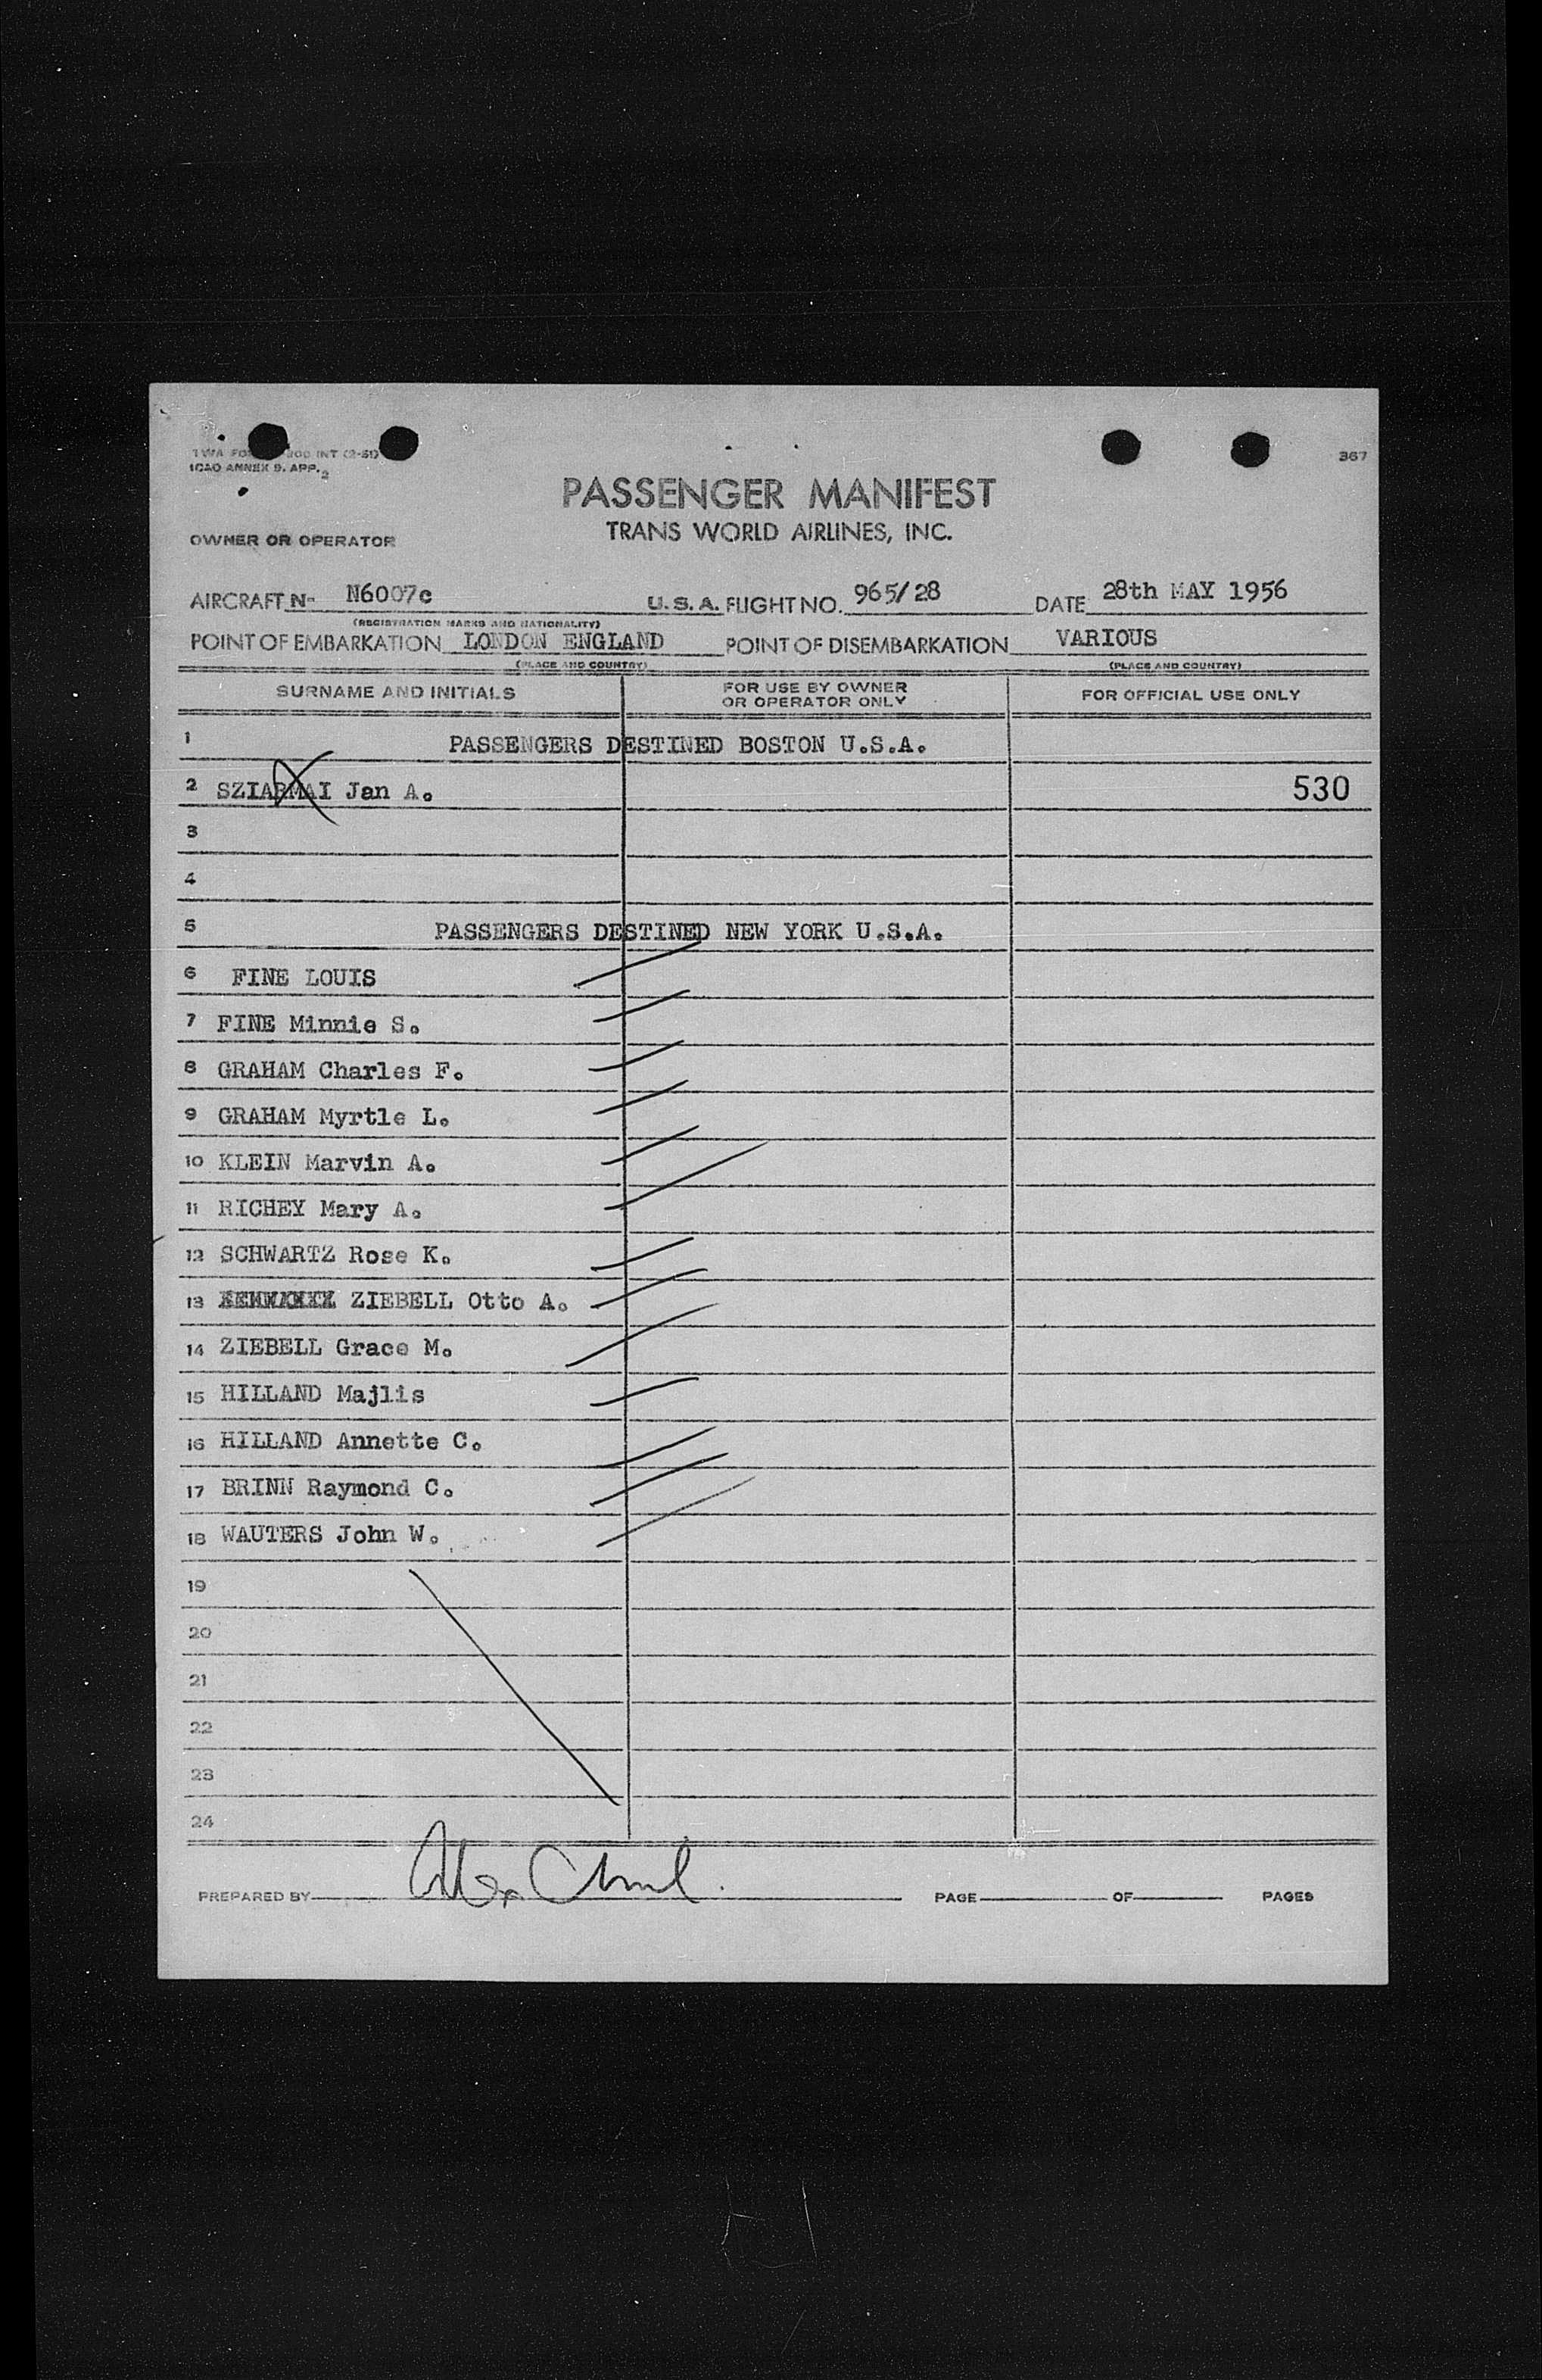 367
ICAO ANNEX 9. APP. 2
PASSENGER MANIFEST
TRANS WORLD AIRLINES, INC.
OWNER OR OPERATOR
AIRCRAFT Nº N6007c U.S.A. FLIGHT NO. 965/28 DATE 28th MAY 1956
(REGISTRATION MARKS AND NATIONALITY)
POINT OF EMBARKATION LONDON ENGLAND POINT OF DISEMBARKATION VARIOUS
(PLACE AND COUNTRY) (PLACE AND COUNTRY)
SURNAME AND INITIALS FOR USE BY OWNER OR OPERATOR ONLY FOR OFFICIAL USE ONLY
1 PASSENGERS DESTINED BOSTON U.S.A.
2 SZIARMAI Jan A. 530
3
4
5 PASSENGERS DESTINED NEW YORK U.S.A.
6 FINE LOUIS
7 FINE Minnie S.
8 GRAHAM Charles F.
9 GRAHAM Myrtle L.
10 KLEIN Marvin A.
11 RICHEY Mary A.
12 SCHWARTZ Rose K.
13 ZIEBELL Otto A.
14 ZIEBELL Grace M.
15 HILLAND Majlis
16 HILLAND Annette C.
17 BRINN Raymond C.
18 WAUTERS John W.
19
20
21
22
23
24
PREPARED BY PAGE OF PAGES